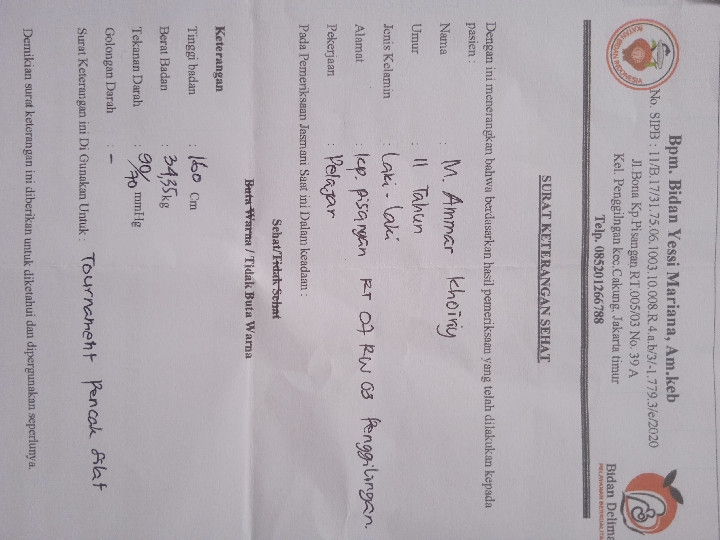 Bpm. Bidan Yessi Mariana, Am.keb
No. SIPB : 11/B.17/31.75.06.1003.10.008.R.4.a.b/3/-1.779.3/e/2020
Jl.Bona Kp.Pisangan,RT.005/03 No. 39 A
Kel. Penggilingan kec,Cakung, Jakarta timur
Telp. 085201266788
IKATAN BIDAN INDONESIA
Bidan Delima
PELAYANAN BERKUALITAS
SURAT KETERANGAN SEHAT
Dengan ini menerangkan bahwa berdasarkan hasil pemeriksaan yang telah dilakukan kepada
pasien :
Nama : M. Ammar Khoiriy
Umur : 11 Tahun
Jenis Kelamin : Laki - laki
Alamat : kp. pisangan RT 07 RW 03 Penggilingan.
Pekerjaan : Pelajar
Pada Pemeriksaan Jasmani Saat ini Dalam keadaan :
Sehat/Tidak Sehat
Buta Warna / Tidak Buta Warna
Keterangan
Tinggi badan : 160 Cm
Berat Badan : 34,35 kg
Tekanan Darah : 90/70 mmHg
Golongan Darah : -
Surat Keterangan ini Di Gunakan Untuk : Tournament Pencak Silat
Demikian surat keterangan ini diberikan untuk diketahui dan dipergunakan seperlunya.